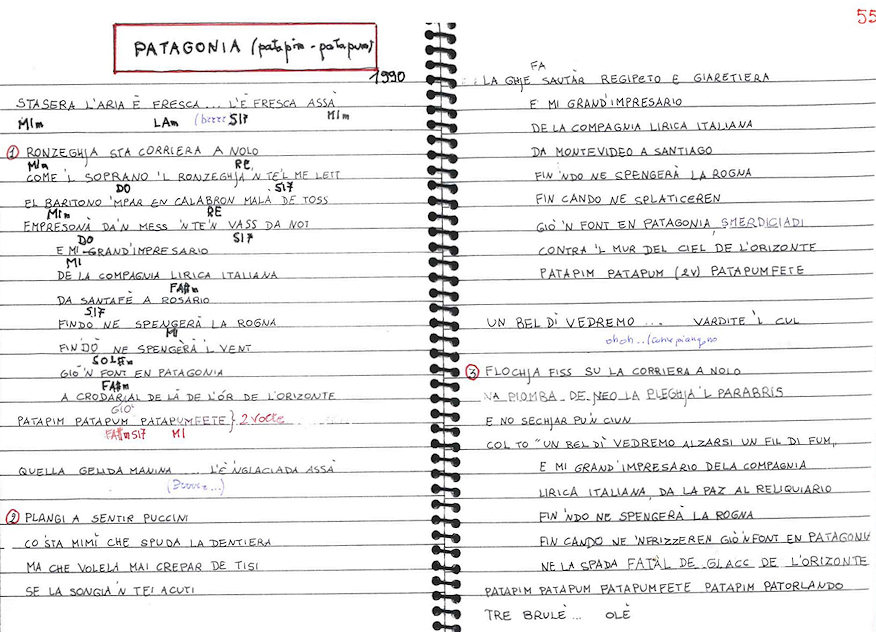 PATAGONIA (patapim - patapum)
1990
STASERA L'ARIA È FRESCA ... L'È FRESCA ASSÀ
MIm LAm (brrrr) SI7 MIm
1 RONZEGHJA STA CORRIERA A NOLO
MIm RE
COME 'L SOPRANO 'L RONZEGHJA 'N TE'L ME LETT
DO SI7
EL BARITONO 'MPAR EN CALABRON MALÀ DE TOSS
MIm RE
EMPRESONÀ DA'N MESS 'NTE'N VASS DA NOT
DO SI7
E MI GRAND'IMPRESARIO
MI
DE LA COMPAGNIA LIRICA ITALIANA
FA#m
DA SANTAFÈ A ROSARIO
SI7
FINDO NE SPENGERÀ LA ROGNA
MI
FINDÒ NE SPENGERÀ 'L VENT
SOL#m
GIÒ 'N FONT EN PATAGONIA
FA#m
A CRODAR AL DE LÀ DE L'ÓR DE L'ORIZONTE
GIÒ
PATAPIM PATAPUM PATAPUMFETE } 2 Volte
FA#m SI7 MI
QUELLA GELIDA MANINA ... L'È 'NGLACIADA ASSÀ
(Brrrrr...)
2 PLANGI A SENTIR PUCCINI
CO STA MIMÌ CHE SPUDA LA DENTIERA
MA CHE VOLELA MAI CREPAR DE TISI
SE LA SONGIA 'N TEI ACUTI
55
FA
LA GHJE SAUTÀR REGIPETO E GIARETIERA
E MI GRAND'IMPRESARIO
DE LA COMPAGNIA LIRICA ITALIANA
DA MONTEVIDEO A SANTIAGO
FIN 'NDO NE SPENGERÀ LA ROGNA
FIN CANDO NE SPLATICEREN
GIÒ 'N FONT EN PATAGONIA, SMERDICIADI
CONTRA 'L MUR DEL CIEL DE L'ORIZONTE
PATAPIM PATAPUM (2V) PATAPUMFETE
UN BEL DÌ VEDREMO ... VARDITE 'L CUL
ohoh..(come piangono
3 FLOCHJA FISS SU LA CORRIERA A NOLO
NA PIOMBA DE NEO LA PLEGHJA 'L PARABRIS
E NO SECHJAR PU'N CIUN
COL TO "UN BEL DÌ VEDREMO ALZARSI UN FIL DI FUM,,
E MI GRAND'IMPRESARIO DELA COMPAGNIA
LIRICA ITALIANA, DA LA PAZ AL RELIQUIARIO
FIN 'NDO NE SPENGERÀ LA ROGNA
FIN CANDO NE 'NFRIZZEREN GIÒ 'N FONT EN PATAGONIA
NE LA SPADA FATÀL DE GLACC DE L'ORIZONTE
PATAPIM PATAPUM PATAPUMFETE PATAPIM PATORLANDO
TRE BRULÈ ... OLÈ